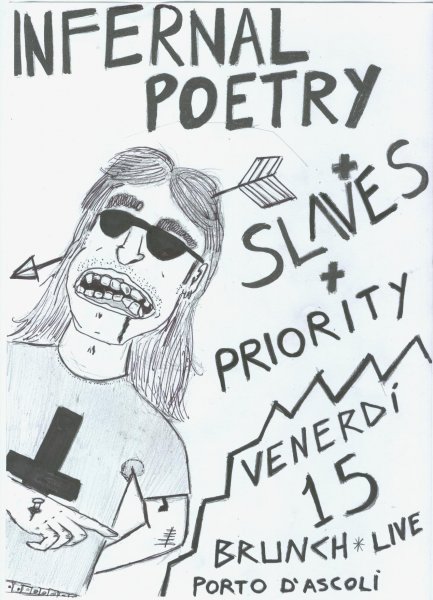 INFERNAL
POETRY
+
SLAVES
+
PRIORITY
VENERDÍ
15
BRUNCH * LIVE
PORTO D'ASCOLI